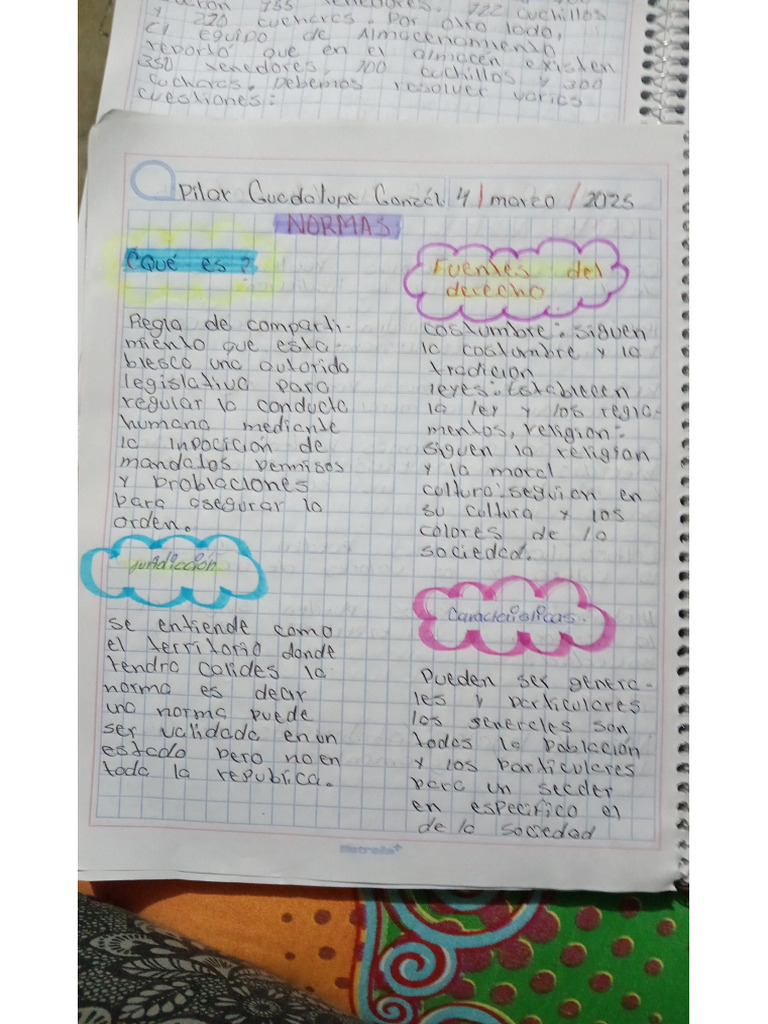 755 tenedores, 722 cuchillos
y 220 cucharas. Por otro lado,
el equipo de Almacenamiento
reportó que en el almacén existen
350 tenedores, 100 cuchillos y 300
cucharas. Debemos resolver varias
cuestiones:
Pilar Guadalupe Gonzál 4/marzo/2025
NORMAS
¿Qué es?
Regla de comparti-
miento que esta-
blesca una autorida
legislativa para
regular la conducta
humana mediante
la inpocición de
mandatos permisos
y problaciones
para asegurar lo
orden.
juridicción
se entiende como
el territorio donde
tendra calides la
norma es decir
una norma puede
ser validada en un
estado pero no en
toda la republica.
Fuentes del
derecho
costumbre: siguen
la costumbre y la
tradicion
leyes: Establecen
la ley y los regla-
mentos, religion:
siguen la religion
y la moral
cultura: seguian en
su cultura y los
colores de la
sociedad.
Caracteristicas.
Pueden ser genera-
les y particulares
los generales son
todos la poblacion
y los particulares
para un secder
en especifico el
de la sociedad